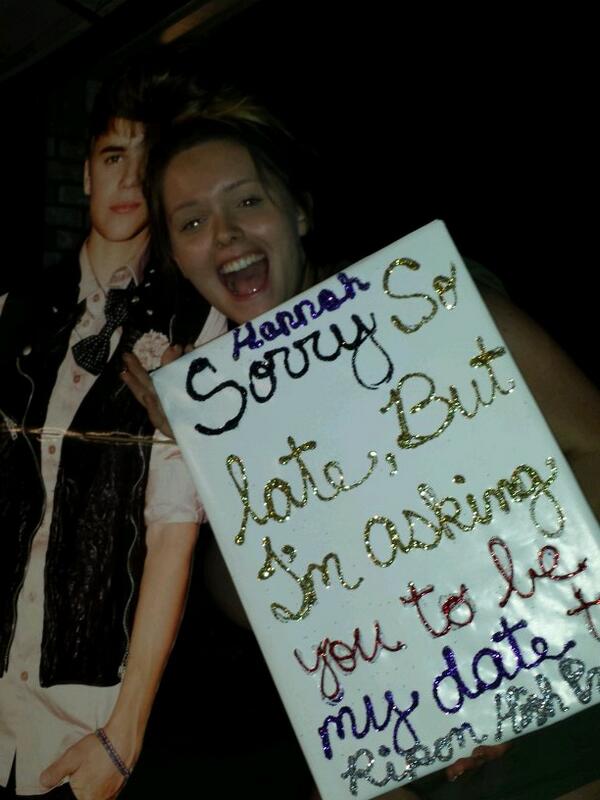 Hannah
Sorry So
late, But
I'm asking
you to be
my date t
Ripon High Pr